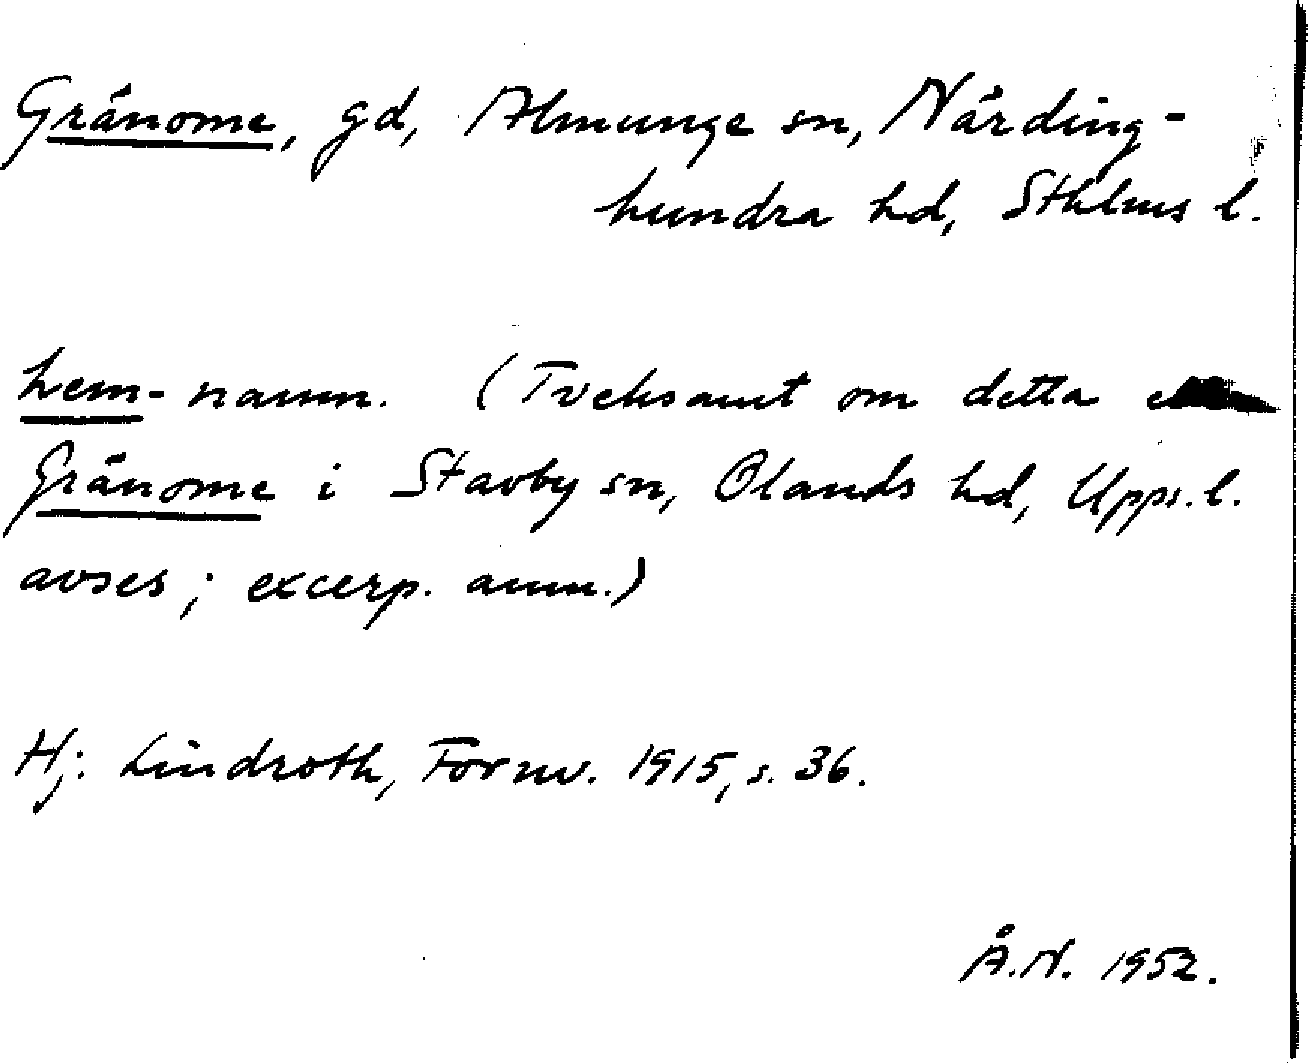 Gränome, gd, Almunge sn, Närding-
hundra hd, Sthlms l.
hem-namn. (Tveksamt om detta
Gränome i Stavby sn, Olands hd, Upps. l.
avses; excerp. anm.)
Hj. Lindroth, Fornv. 1915, s. 36.
Å.N. 1952.